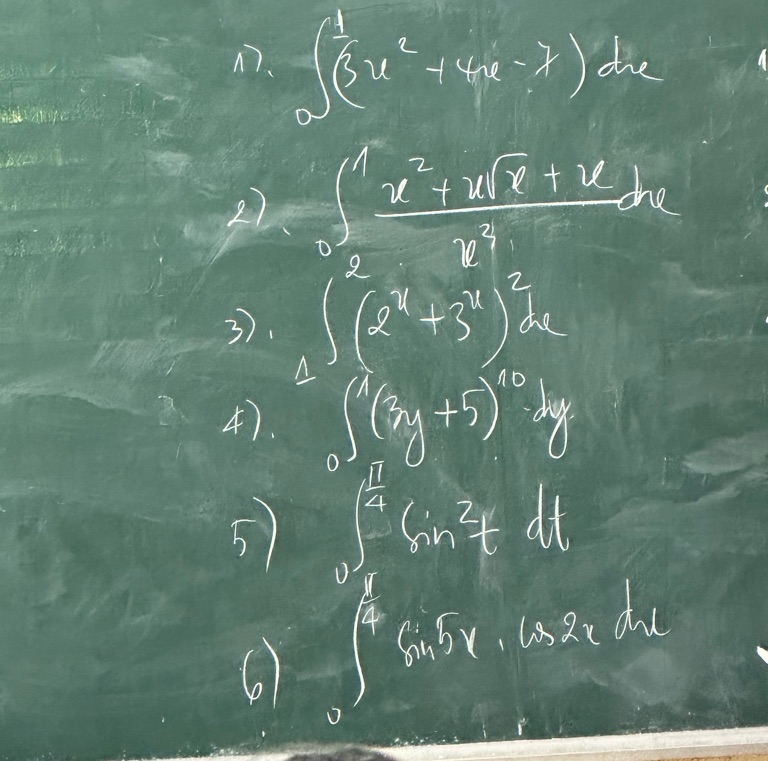 1). ∫₀¹ (3x² + 4x - 7) dx
2). ∫₀¹ (x² + x√x + x)/x³ dx
3). ∫₁² (2ˣ + 3ˣ)² dx
4). ∫₀¹ (3y + 5)¹⁰ dy.
5) ∫₀^(π/4) sin²t dt
6) ∫₀^(π/4) sin5x . cos2x dx